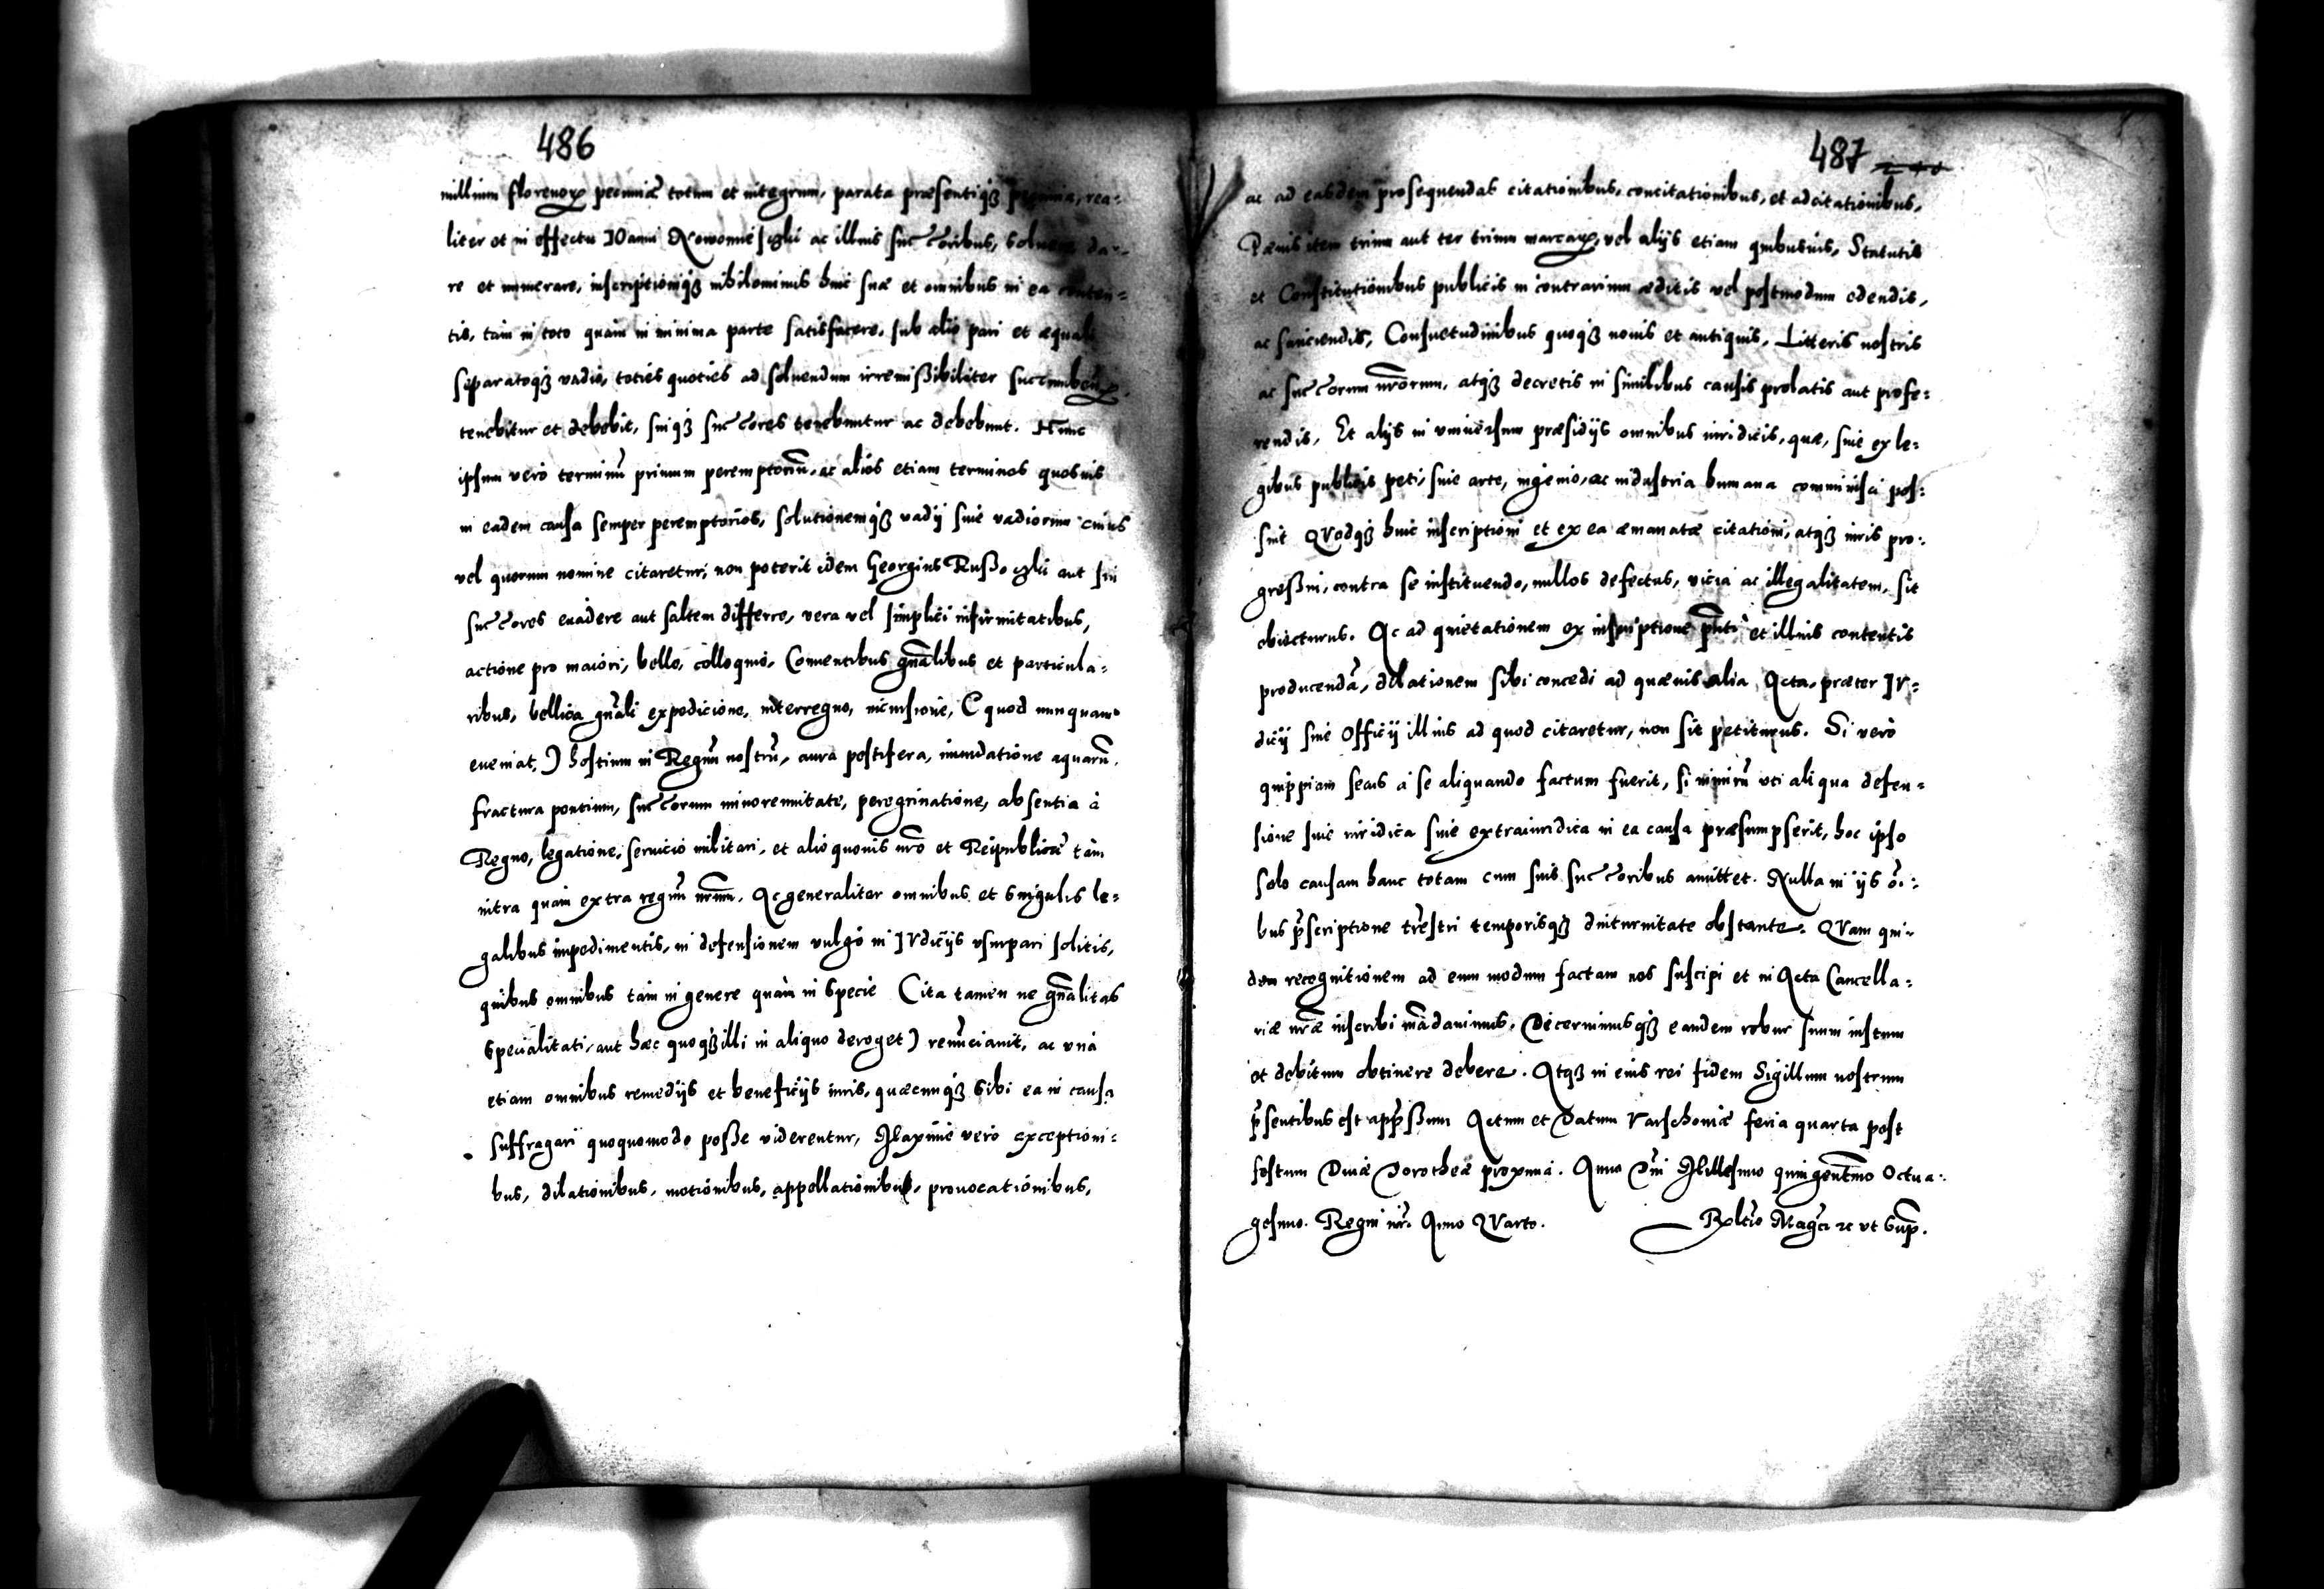 486
millium florenorꝝ pecuniæ totum et integrum, parata præsentiq́ꝫ pecunia, rea=
liter et in effectu IOanni Nowomieiski ac illius succ̃oribus, soluere da=
re et numerare, inscriptioniq́ꝫ nihilominus huic suæ et omnibus in ea conten=
tis, tam in toto quàm in minima parte satisfacere, sub alio pari et æquali
separatoq́ꝫ vadio, toties quoties ad soluendum irremißibiliter
tenebitur et debebit, suiq́ꝫ succ̃ores tenebuntur ac debebunt. Hunc
ipsum verò terminũ primum peremptoriũ, ac alios etiam terminos quosuis
in eadem causa semper peremptorios, solutionemq́ꝫ vadij siue vadiorum cuius
vel quorum nomine citaretur, non poterit idem Georgius aut sui
succ̃ores euadere aut saltem differre, vera vel simplici infirmitatibus,
actione pro maiori, bello, colloquio, Conuentibus gñalibus et particula=
ribus, bellica gñali expedicione, interregno, incursione, ( quod nunquam
eueniat, ) hostium in Regnũ nostrũ, aura pestifera, inundatione aquarũ,
fractura pontium, succ̃orum minorennitate, peregrinatione, absentia à
Regno, legatione, seruicio militari, et alio quouis nr̃o et Reipublicæ tàm
intra quàm extra regnũ nr̃um. Ac generaliter omnibus et singulis le=
galibus impedimentis, in defensionem vulgò in IVdicijs vsurpari solitis,
quibus omnibus tàm in genere quàm in specie (ita tamen ne gñalitas
specialitati, aut hæc quoq́ꝫ illi in aliquo deroget) renũciauit, ac vnà
etiam omnibus remedijs et beneficijs iuris, quæcunq́ꝫ sibi ea in causa
suffragari quoquomodo poße viderentur, Maximè verò exceptioni=
bus, dilationibus, motionibus, appellationibus, prouocationibus,
487
ac ad easdem prosequendas citationibus, concitationibus, et adcitationibus,
Pænis item trium aut ter trium marcarꝝ, vel alijs etiam quibusuis, Statutis
et Constitutionibus publicis in contrarium æditis vel postmodum edendis,
ac sanciendis, Consuetudinibus quoq́ꝫ nouis et antiquis, Litteris nostris
ac succ̃orum nr̃orum, atq́ꝫ decretis in similibus causis prolatis aut profe=
rendis, Et alijs in vniuersum præsidijs omnibus iuridicis, quæ, siue ex le=
gibus publicis peti, siue arte, ingenio, ac industria humana comminisci pos=
sint Quodq́ꝫ huic inscriptioni et ex ea æmanatæ citationi, atq́ꝫ iuris pro=
greßui, contra se instituendo, nullos defectus, vicia ac illegalitatem, sit
obiecturus. Ac ad quietationem ex inscriptione pñti et illius contentis
producendã, dilationem sibi concedi ad quæuis alia Acta, præter IV=
dicij siue Officij illius ad quod citaretur, non sit petiturus. Si verò
quippiam secus à se aliquando factum fuerit, si nimirũ vti aliqua defen=
sione siue iuridica siue extraiuridica in ea causa præsumpserit, hoc ipso
solo causam hanc totam cum suis succ̃oribus amittet. Nulla in ijs oĩ=
bus p̃scriptione tr̃estri temporisq́ꝫ diuturnitate obstante. QVam qui=
dem recognitionem ad eum modum factam nos suscipi et in Acta Cancella=
riæ nr̃æ inscribi mãdauimus, Decernimusq́ꝫ eandem robur suum iustum
et debitum obtinere debere. Atq́ꝫ in eius rei fidem Sigillum nostrum
p̃sentibus est app̃ßum Actum et Datum Varschouiæ feria quarta post
festum Diuæ Dorotheæ proxima. Anno Dñi Millesimo quingentmo Octua=
gesimo. Regni nr̃i Anno QVarto. Rel̃tio Mag̃ci ꝛc vt Sup̃.